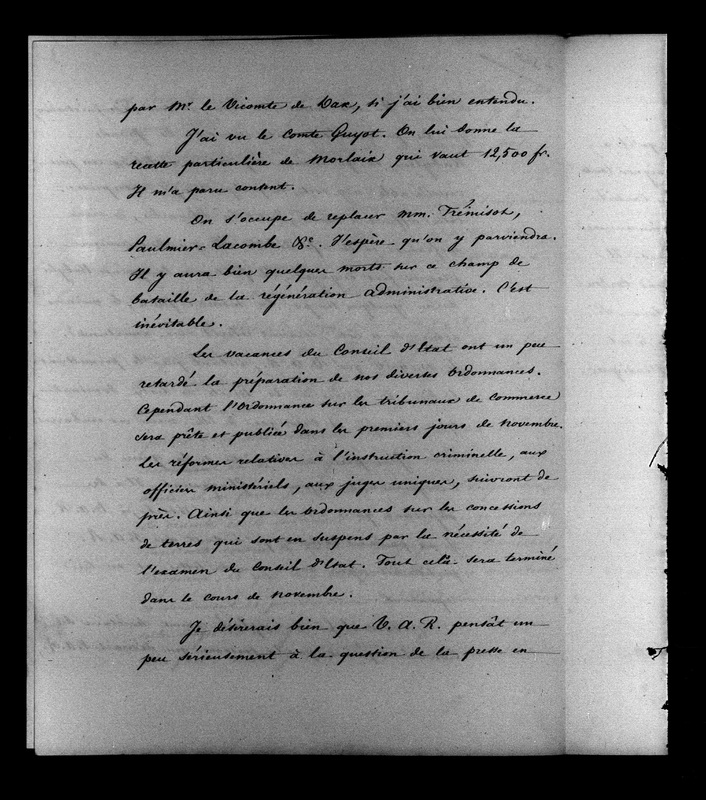 par Mr. le Vicomte de Dax, si j'ai bien entendu.
J'ai vu le Comte Guyot. On lui donne la
recette particulière de Morlaix qui vaut 12,500 fr.
Il m'a paru content.
On s'occupe de replacer MM. Trémisot,
Paulmier, Lacombe &c. J'espère qu'on y parviendra.
Il y aura bien quelques morts sur ce champ de
bataille de la régénération administrative. C'est
inévitable.
Les vacances du Conseil d'Etat ont un peu
retardé la préparation de nos diverses Ordonnances.
Cependant l'Ordonnance sur les tribunaux de commerce
sera prête et publiée dans les premiers jours de novembre.
Les réformes relatives à l'instruction criminelle, aux
officiers ministériels, aux juges uniques, suivront de
près. Ainsi que les ordonnances sur les concessions
de terres qui sont en suspens par la nécessité de
l'examen du Conseil d'Etat. Tout celà sera terminé
dans le cours de novembre.
Je désirerais bien que V. A. R. pensât un
peu sérieusement à la question de la presse en